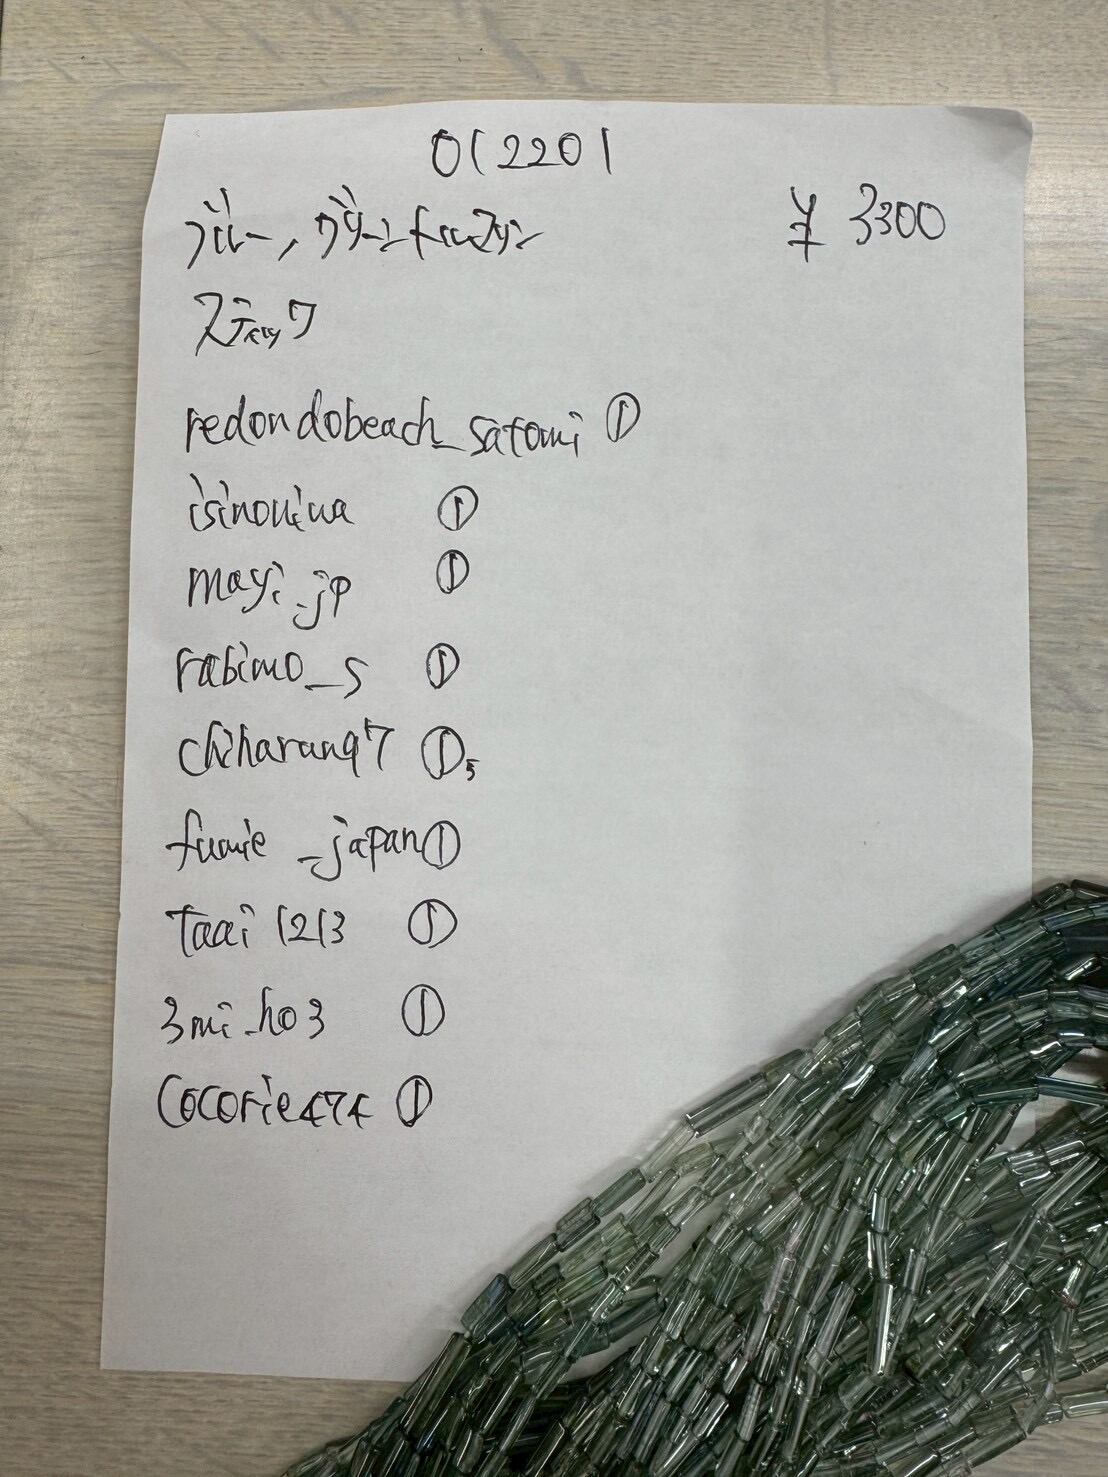 012201
ブルー,グリーントルマリン ¥3300
スティック
redondobeach_satomi ①
isinoniwa ①
mayi_jp ①
rabimo_s ①
chiharung97 ①5
fumie_japan ①
taai1213 ①
3mi_ho3 ①
cocorie474 ①